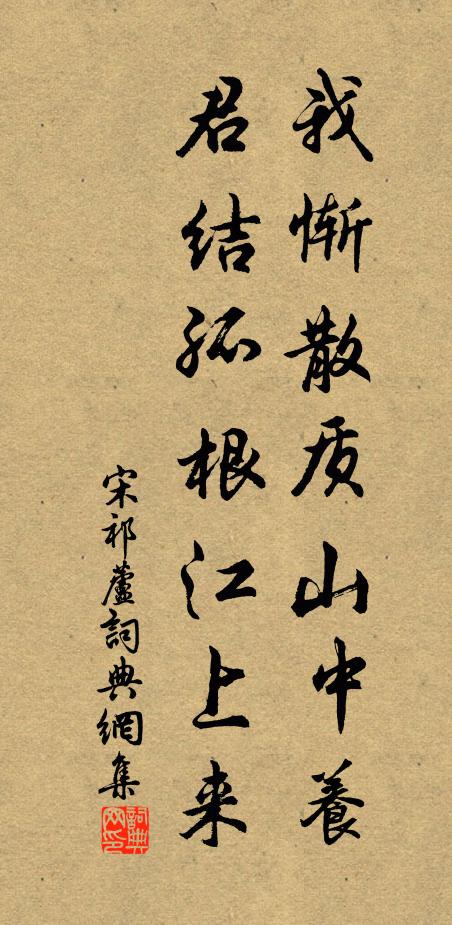 我惭散质山中養
君结孤根江上来
宋祁蘆詞典網集
詞典网印